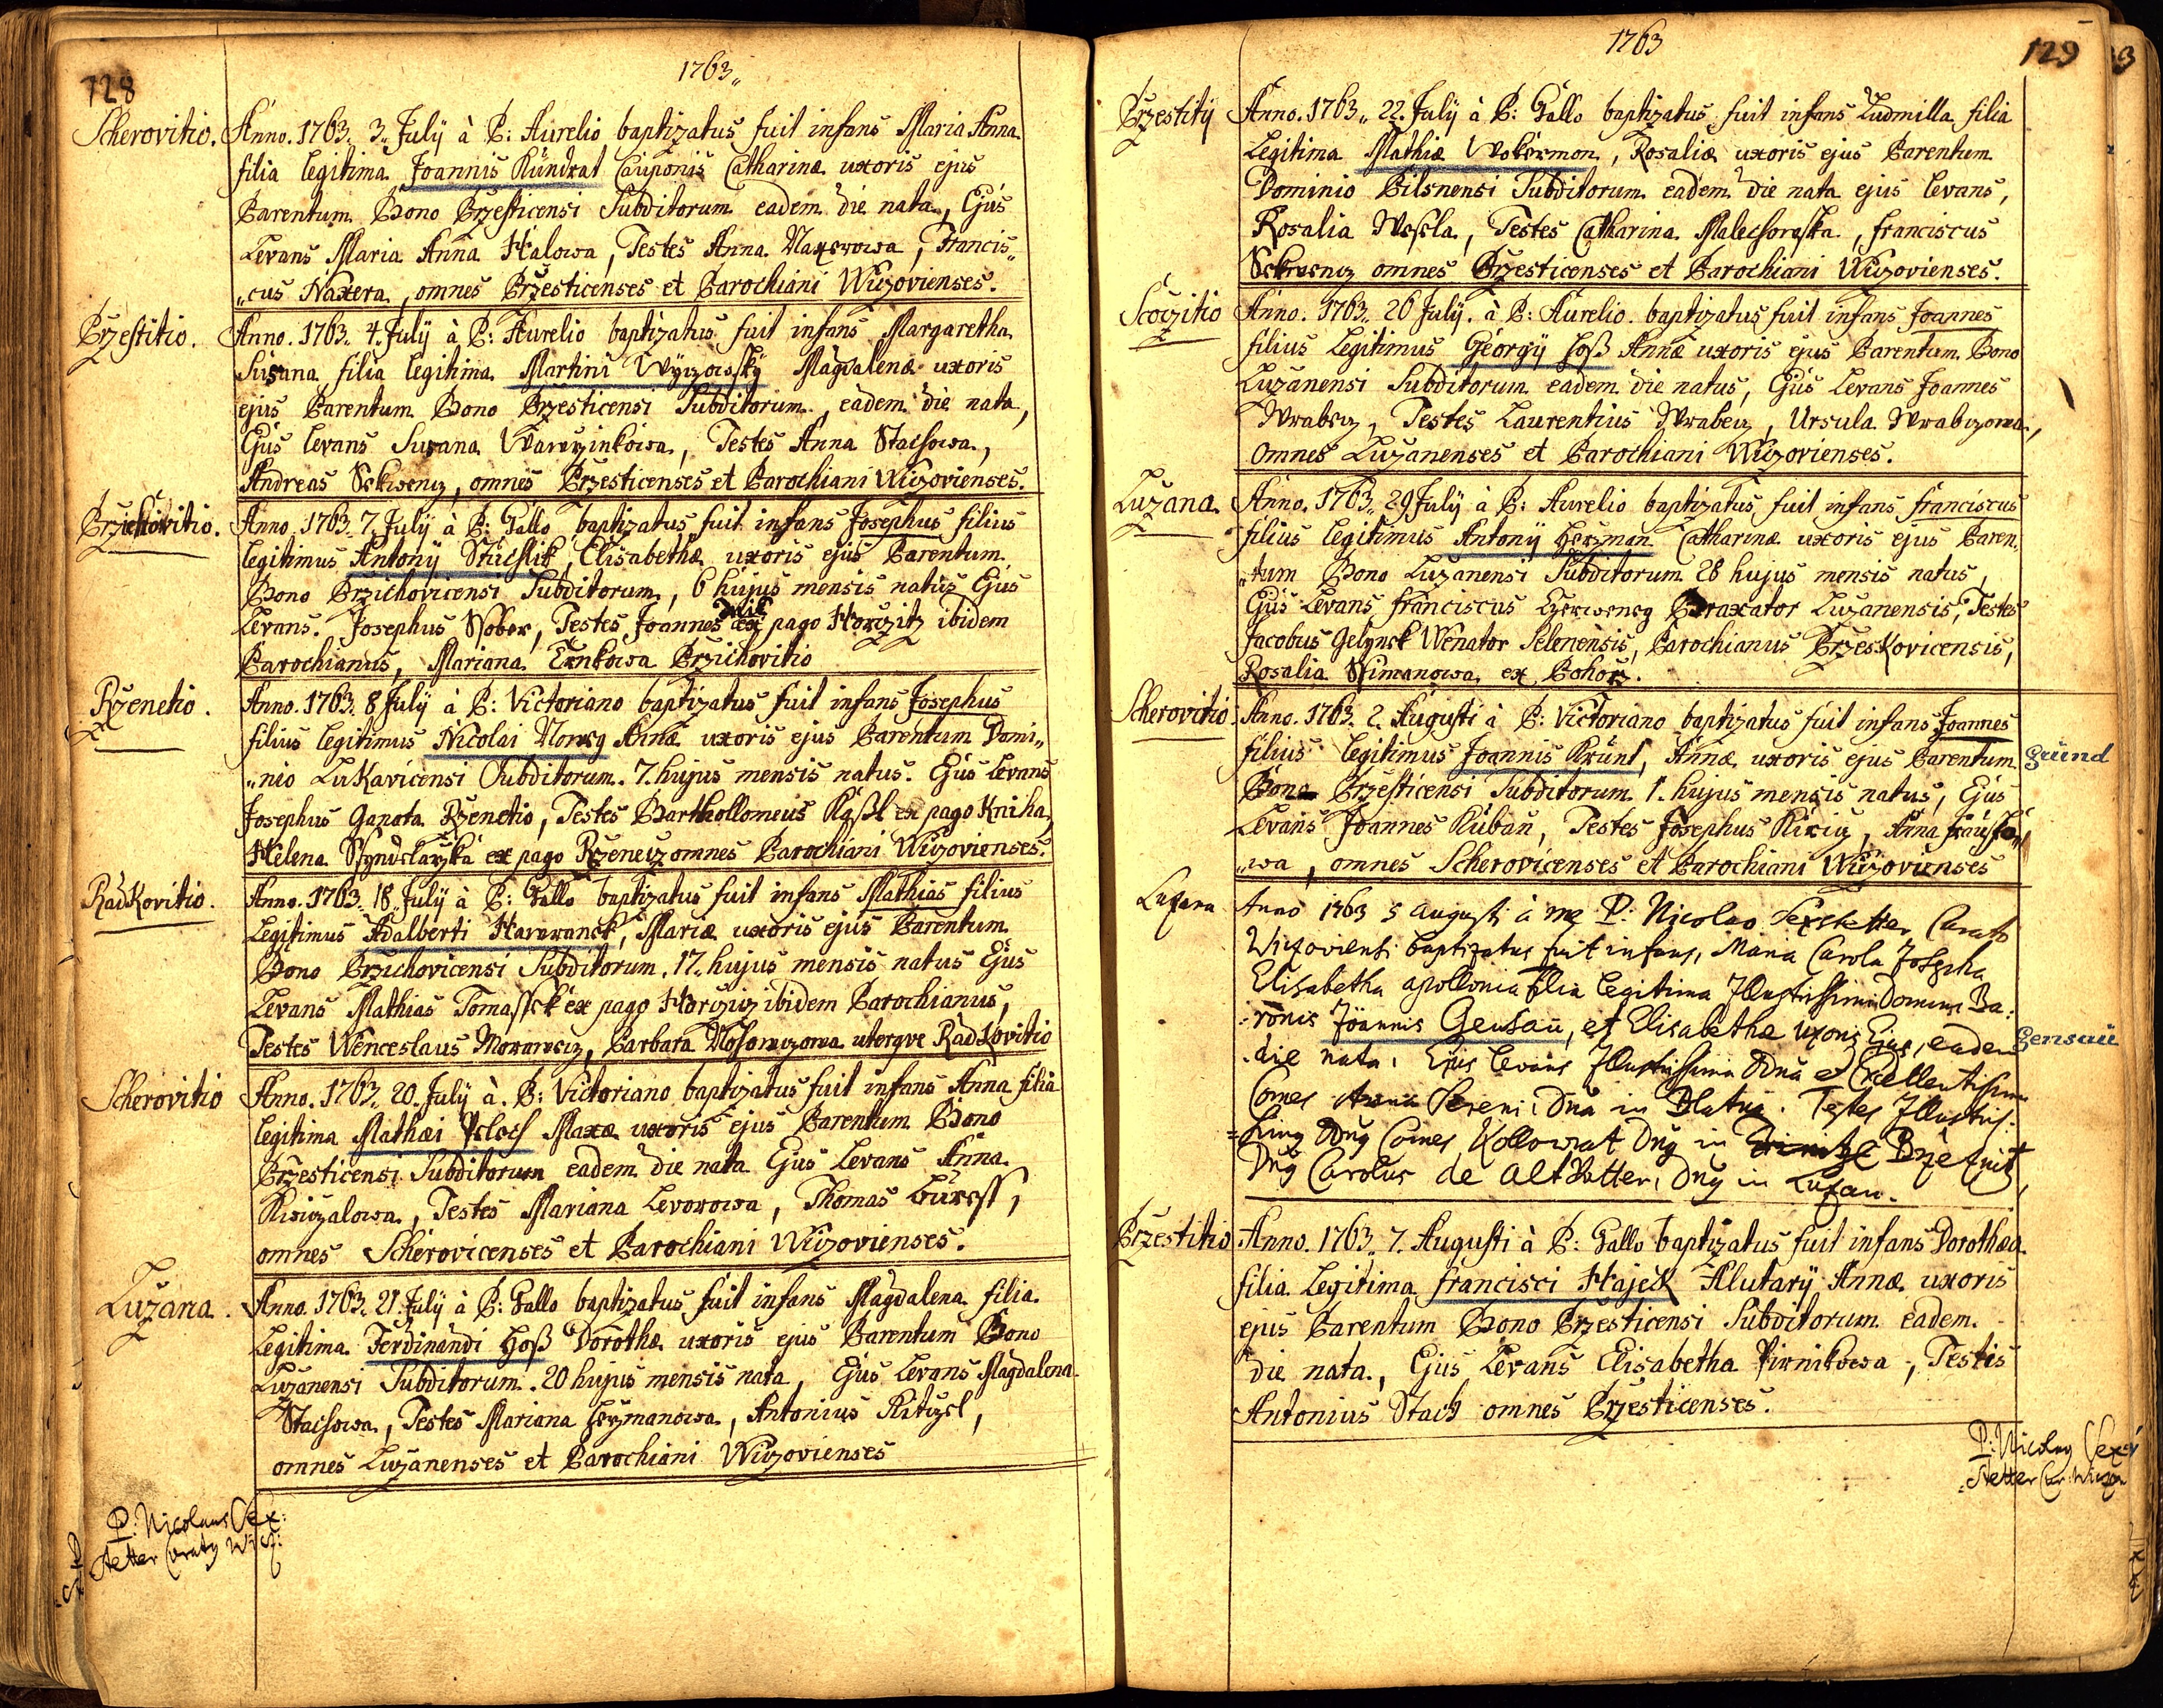 128
1763„
Scherovitio. Anno. 1763„ 3„ Julÿ à P: Aurelio baptizatus fuit infans Maria Anna
filia legitima Joannis Kündrat Cauponis Catharinæ uxoris ejus
Parentum Bono Przesticensi Subditorum eadem die nata, Ejus
Levans Maria Anna Halowa, Testes Anna Naxerowa, Francis„
„cus Naxera, omnes Przesticenses et Parochiani Wiczovienses.
Przestitio. Anno. 1763„ 4. Julÿ à P: Aurelio baptizatus fuit infans Margaretha
Susana filia legitima Martini Wÿczowskÿ Magdalenæ uxoris
ejus Parentum Bono Przesticensi Subditorum, eadem die nata,
Ejus levans Susana Wawrzinkowa, Testes Anna Stachowa,
Andreas Sskwencz, omnes Przesticenses et Parochiani Wiczovienses.
Przichovitio. Anno. 1763„ 7. Julÿ à P: Gallo baptizatus fuit infans Josephus filius
legitimus Antonÿ Stuchlik, Elisabethæ uxoris ejus Parentum
Bono Przichovicensi Subditorum, 6 hujus mensis natus Ejus
Levans. Josephus Sober, Testes Joannes ex pago Horczitz ibidem
Parochianus, Mariana Trnkowa Przichovitio
Rzenetio. Anno. 1763„ 8 Julÿ à P: Victoriano baptizatus fuit infans Josephus
filius legitimus Nicolai Noweg Annæ uxoris ejus Parentum Domi„
„nio Lukavicensi Subditorum. 7. hujus mensis natus. Ejus Levans
Josephus Ganota Rzenetio, Testes Barthollomeus ex pago Kniha,
Helena ex pago Rzenecz omnes Parochiani Wiczovienses.
Radkovitio. Anno. 1763„ 18„ Julÿ à P: Gallo baptizatus fuit infans Mathias filius
Legitimus Adalberti Hawranek, Mariæ uxoris ejus Parentum
Bono Przichovicensi Subditorum. 17„ hujus mensis natus Ejus
Levans Mathias Tomassek ex pago Horczicz ibidem Parochianus,
Testes Wenceslaus Morawecz, Barbara uterqve Radkovitio
Scherovitio Anno. 1763„ 20. Julÿ à. P: Victoriano baptizatus fuit infans Anna filia
legitima Mathæi uxoris ejus Parentum Bono
Przesticensi Subditorum eadem die nata Ejus Levans Anna
Kiviczalowa, Testes Mariana Levorowa, Thomas Buress,
omnes Scherovicenses et Parochiani Wiczovienses.
Luzana. Anno. 1763„ 21. Julÿ à P: Gallo baptizatus fuit infans Magdalena filia
Legitima Ferdinandi Hoß Dorothæ uxoris ejus Parentum Bono
Luzanensi Subditorum. 20 hujus mensis nata, Ejus Levans Magdalena
Stachowa, Testes Mariana Herzmanowa, Antonius Kitzel,
omnes Luzanenses et Parochiani Wiczovienses
P: Nicolaus Sex:
stetter Curatg Wicz:
1763
129
Przestitÿ Anno. 1763„ 22. Julÿ à P: Gallo baptizatus fuit infans Ludmilla filia
Legitima Mathiæ Wokermon, Rosaliæ uxoris ejus Parentum
Dominio Pilsnensi Subditorum eadem die nata ejus levans,
Rosalia Wesela, Testes Catharina Malechorzka, Franciscus
Sskwencz omnes Przesticenses et Parochiani Wiczovienses.
Scoczitio Anno. 1763„ 26 Julÿ. à P: Aurelio. baptizatus fuit infans Joannes
filius Legitimus Georgÿ Hoß Annæ uxoris ejus Parentum Bono
Luzanensi Subditorum eadem die natus, Ejus Levans Joannes
Wrabecz, Testes Laurentius Wrabecz, Ursula Wrabczowa,
omnes Luzanenses et Parochiani Wiczovienses.
Luzana. Anno. 1763„ 29 Julÿ à P: Aurelio baptizatus fuit infans Franciscus
filius legitimus Antonÿ Herzman Catharinæ uxoris ejus Paren„
„tum Bono Luzanensi Subditorum 28 hujus mensis natus,
Ejus Levans Franciscus Czerweneg Braxator Luzanensis, Testes
Jacobus Gelynek Wenator Selenensis, Parochianus Przeskovicensis,
Rosalia Ssimanowa ex Bohorz.
Scherovitio Anno. 1763„ 2. Augusti à P: Victoriano baptizatus fuit infans Joannes
filius legitimus Joannis Krünt, Annæ uxoris ejus Parentum Gründ
Bono Przesticensi Subditorum 1. hujus mensis natus, Ejus
Levans Joannes Kuban, Testes Josephus Anna
„wa, omnes Scherovicenses et Parochiani Wiczovienses
Luzana Anno 1763 5 augusti à me P: Nicolao Sexstetter Curato
Wiczoviensi baptizatus fuit infans, Maria Carola Josepha
Elisabetha apollonia filia legitima Illustrissimi Domini Ba:
:ronis Joannis Gensau, et Elisabethæ uxoris Ejus, eadem Gensau
die nata, Ejus levans Illustrissima Dna et Excellentissima
Comes Sereni Dna in Blatna. Testes Illustris:
=simg Dng Comes Kollowrat Dng in Brzeznitz
Dng Carolus de Altvatter, Dng in Luzan.
Przestitio Anno. 1763„ 7. Augusti à P: Gallo baptizatus fuit infans Dorothæa
filia Legitima Francisci Hajeck Alutarÿ Annæ uxoris
ejus Parentum Bono Przesticensi Subditorum eadem
die nata, Ejus Levans Elisabetha Pirnikowa, Testis
Antonius Stach omnes Przesticenses.
P: Nicolag Sex:
:stetter Cur: Wicz